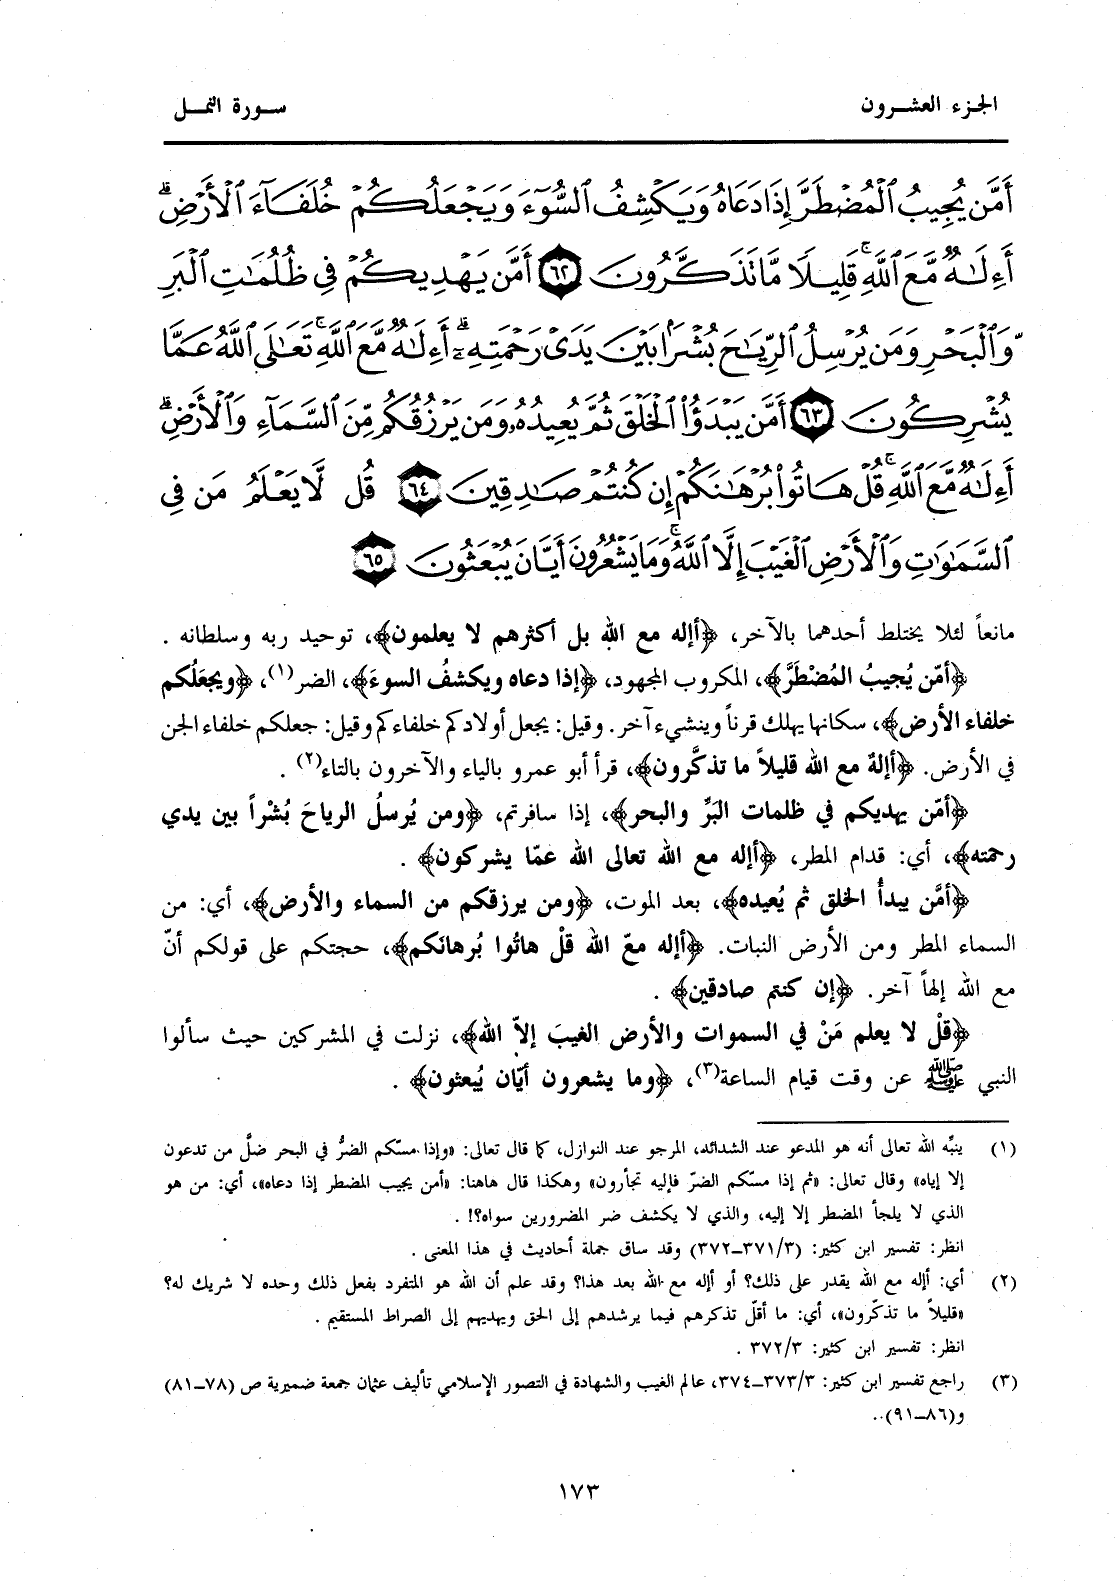 الجزء العشرون
سورة النمل
أَمَّن يُجِيبُ ٱلْمُضْطَرَّ إِذَا دَعَاهُ وَيَكْشِفُ ٱلسُّوٓءَ وَيَجْعَلُكُمْ خُلَفَآءَ ٱلْأَرْضِ ۗ
أَءِلَٰهٌ مَّعَ ٱللَّهِ ۚ قَلِيلًا مَّا تَذَكَّرُونَ ٦٢ أَمَّن يَهْدِيكُمْ فِى ظُلُمَٰتِ ٱلْبَرِّ
وَٱلْبَحْرِ وَمَن يُرْسِلُ ٱلرِّيَٰحَ بُشْرًۢا بَيْنَ يَدَىْ رَحْمَتِهِۦٓ ۗ أَءِلَٰهٌ مَّعَ ٱللَّهِ ۚ تَعَٰلَى ٱللَّهُ عَمَّا
يُشْرِكُونَ ٦٣ أَمَّن يَبْدَؤُا۟ ٱلْخَلْقَ ثُمَّ يُعِيدُهُۥ وَمَن يَرْزُقُكُم مِّنَ ٱلسَّمَآءِ وَٱلْأَرْضِ ۗ
أَءِلَٰهٌ مَّعَ ٱللَّهِ ۚ قُلْ هَاتُوا۟ بُرْهَٰنَكُمْ إِن كُنتُمْ صَٰدِقِينَ ٦٤ قُل لَّا يَعْلَمُ مَن فِى
ٱلسَّمَٰوَٰتِ وَٱلْأَرْضِ ٱلْغَيْبَ إِلَّا ٱللَّهُ ۚ وَمَا يَشْعُرُونَ أَيَّانَ يُبْعَثُونَ ٦٥
مانعاً لئلا يختلط أحدهما بالآخر، ﴿أإله مع اللهِ بل أكثرهم لا يعلمون﴾، توحيد ربه وسلطانه .
﴿أمّن يُجيبُ المُضْطَرَّ﴾، المكروب المجهود، ﴿إذا دعاه ويكشفُ السوءَ﴾، الضر(١)، ﴿ويجعَلُكم
خلفاء الأرض﴾، سكانها يهلك قرناً وينشيء آخر. وقيل: يجعل أولادكم خلفاءكم وقيل: جعلكم خلفاء الجن
في الأرض. ﴿أإلهٌ مع الله قليلاً ما تذكَّرون﴾، قرأ أبو عمرو بالياء والآخرون بالتاء(٢) .
﴿أمّن يهديكم في ظلمات البَرِّ والبحر﴾، إذا سافرتم، ﴿ومن يُرسلُ الرياحَ بُشْراً بين يدي
رحمته﴾، أي: قدام المطر، ﴿أإله مع الله تعالى الله عمّا يشركون﴾ .
﴿أمَّن يبدأُ الخلق ثم يُعيده﴾، بعد الموت، ﴿ومن يرزقكم من السماء والأرض﴾، أي: من
السماء المطر ومن الأرض النبات. ﴿أإله معَ الله قلْ هاتُوا بُرهانَكم﴾، حجتكم على قولكم أنّ
مع الله إلهاً آخر. ﴿إن كنتم صادقين﴾ .
﴿قلْ لا يعلم مَنْ في السموات والأرض الغيبَ إلاّ الله﴾، نزلت في المشركين حيث سألوا
النبي ﷺ عن وقت قيام الساعة(٣)، ﴿وما يشعرون أيّان يُبعثون﴾ .
(١) ينبِّه الله تعالى أنه هو المدعو عند الشدائد، المرجو عند النوازل، كما قال تعالى: «وإذا مسّكم الضرُّ في البحر ضلَّ من تدعون
إلا إياه» وقال تعالى: «ثم إذا مسّكم الضرّ فإليه تجأرون» وهكذا قال هاهنا: «أمن يجيب المضطر إذا دعاه»، أي: من هو
الذي لا يلجأ المضطر إلا إليه، والذي لا يكشف ضر المضرورين سواه؟! .
انظر: تفسير ابن كثير: (٣/٣٧١-٣٧٢) وقد ساق جملة أحاديث في هذا المعنى .
(٢) أي: أإله مع الله يقدر على ذلك؟ أو أإله مع الله بعد هذا؟ وقد علم أن الله هو المتفرد بفعل ذلك وحده لا شريك له؟
«قليلاً ما تذكّرون»، أي: ما أقلّ تذكرهم فيما يرشدهم إلى الحق ويهديهم إلى الصراط المستقيم .
انظر: تفسير ابن كثير: ٣/٣٧٢ .
(٣) راجع تفسير ابن كثير: ٣/٣٧٣-٣٧٤، عالم الغيب والشهادة في التصور الإسلامي تأليف عثمان جمعة ضميرية ص (٧٨-٨١)
و(٨٦-٩١)..
١٧٣